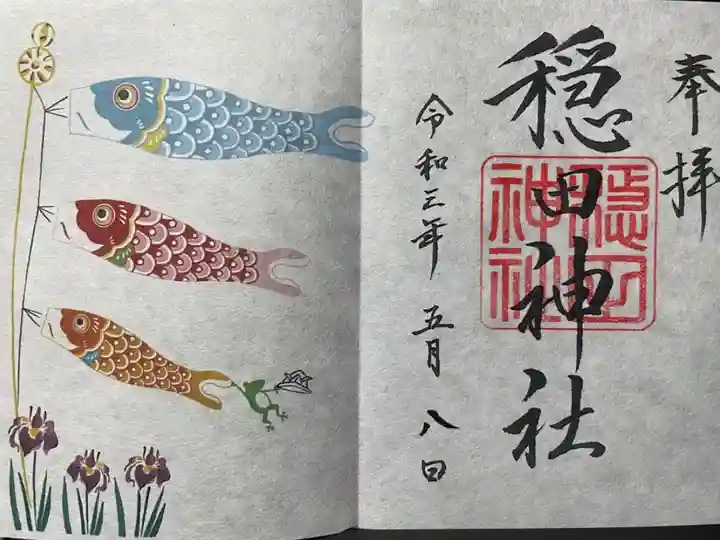 奉拝
穏田神社
令和三年 五月 八日
穏田
神社